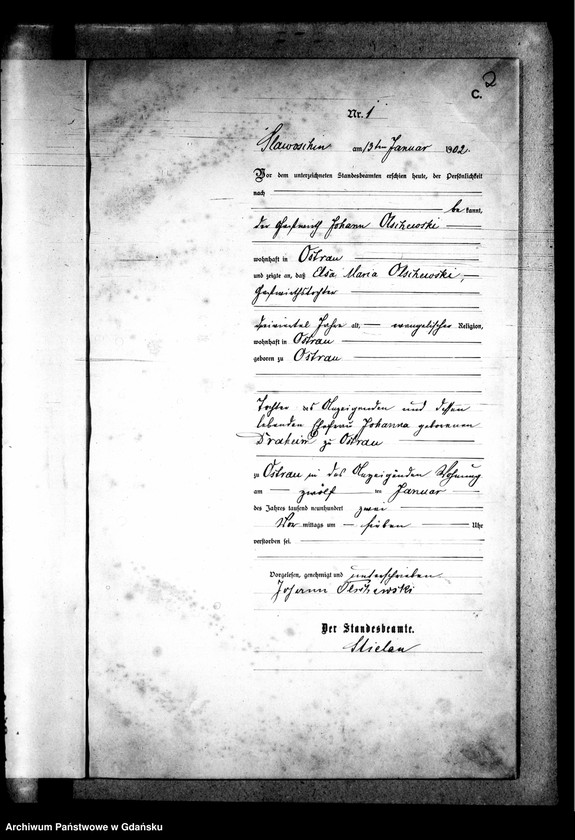 C. 2
Nr. 1
Slawoschin am 13ten Januar 1902.
Vor dem unterzeichneten Standesbeamten erschien heute, der Persönlichkeit
nach
be kannt,
der Gastwirth Johann Olschewski
wohnhaft in Ostrau
und zeigte an, daß Elsa Maria Olschewski,
Gastwirthstochter
dreiviertel Jahre alt, evangelischer Religion,
wohnhaft in Ostrau
geboren zu Ostrau
Tochter des Anzeigenden und dessen
lebenden Ehefrau Johanna geborenen
Draheim zu Ostrau
zu Ostrau in des Anzeigenden Wohnung
am zwölf ten Januar
des Jahres tausend neunhundert zwei
Vor mittags um sieben Uhr
verstorben sei.
Vorgelesen, genehmigt und unterschrieben
Johann Olschewski
Der Standesbeamte.
Archiwum Państwowe w Gdańsku